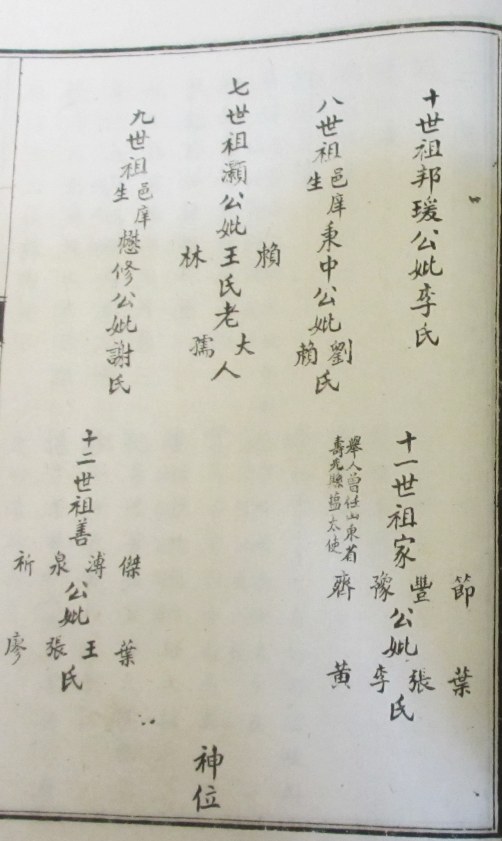 十世祖邦瑗公妣李氏
八世祖邑庠生秉中公妣劉賴氏
七世祖灝公妣賴王林氏老大孺人
九世祖邑庠生懋修公妣謝氏
十一世祖家節豐豫齊公妣葉張李黃氏
舉人曾任山東省
壽光縣塩太使
十二世祖善傑溥泉祈公妣葉王張廖氏
神位